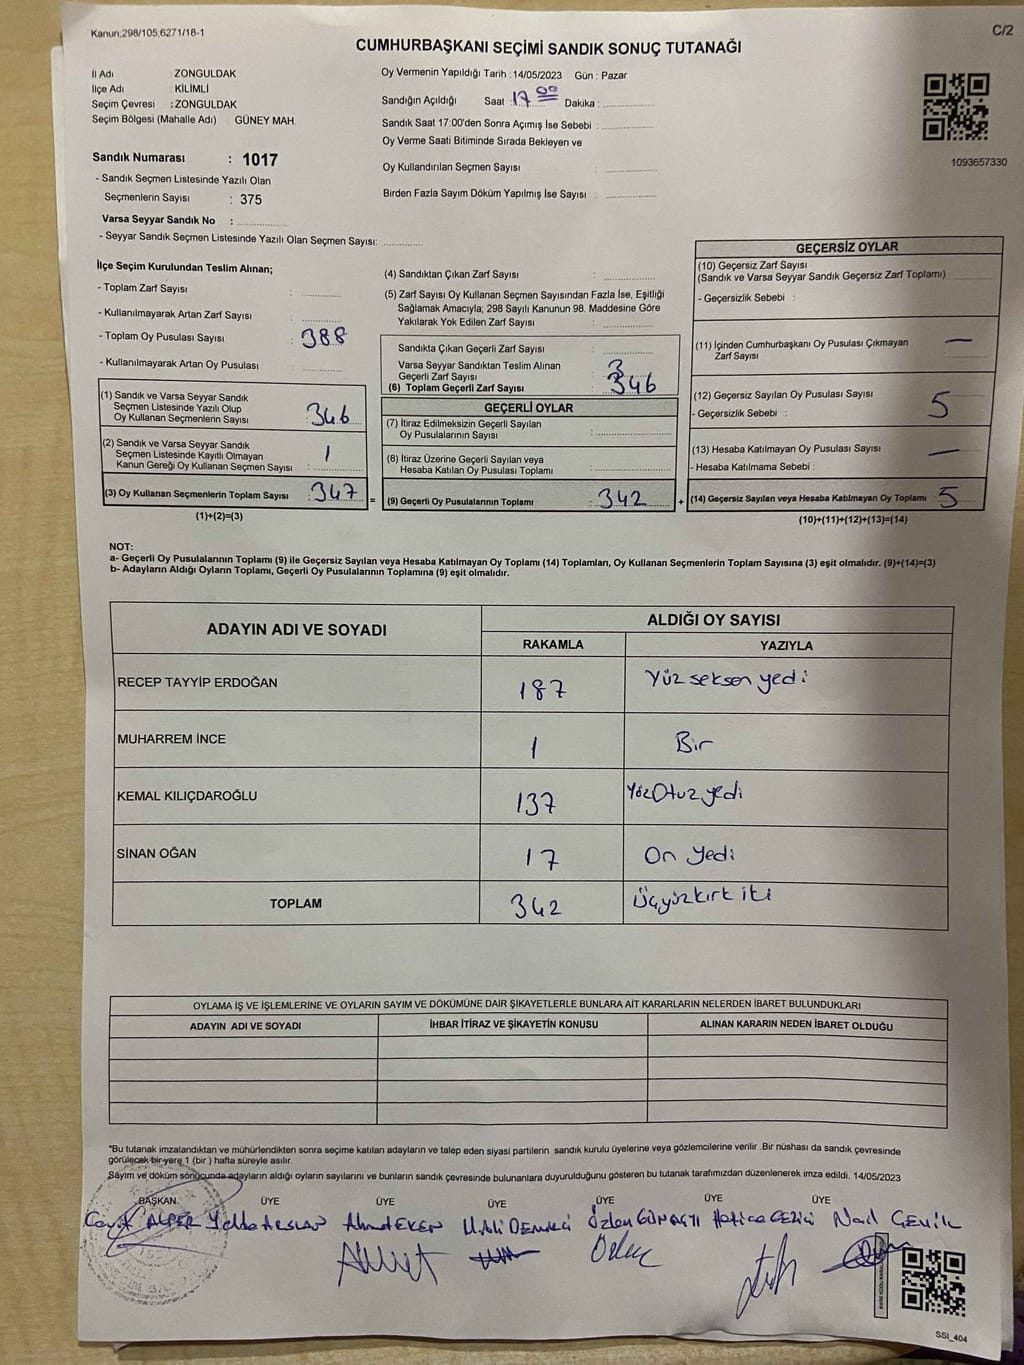 Kanun;298/105,6271/18-1
C/2
CUMHURBAŞKANI SEÇİMİ SANDIK SONUÇ TUTANAĞI
İl Adı : ZONGULDAK
İlçe Adı : KİLİMLİ
Seçim Çevresi : ZONGULDAK
Seçim Bölgesi (Mahalle Adı) GÜNEY MAH.
Sandık Numarası : 1017
- Sandık Seçmen Listesinde Yazılı Olan
Seçmenlerin Sayısı : 375
Varsa Seyyar Sandık No :
- Seyyar Sandık Seçmen Listesinde Yazılı Olan Seçmen Sayısı:
Oy Vermenin Yapıldığı Tarih : 14/05/2023 Gün : Pazar
Sandığın Açıldığı Saat : 17 00 Dakika :
Sandık Saat 17:00'den Sonra Açımış İse Sebebi :
Oy Verme Saati Bitiminde Sırada Bekleyen ve
Oy Kullandırılan Seçmen Sayısı :
Birden Fazla Sayım Döküm Yapılmış İse Sayısı :
1093657330
İlçe Seçim Kurulundan Teslim Alınan;
- Toplam Zarf Sayısı :
- Kullanılmayarak Artan Zarf Sayısı :
- Toplam Oy Pusulası Sayısı : 388
- Kullanılmayarak Artan Oy Pusulası :
(1) Sandık ve Varsa Seyyar Sandık
Seçmen Listesinde Yazılı Olup
Oy Kullanan Seçmenlerin Sayısı 346
(2) Sandık ve Varsa Seyyar Sandık
Seçmen Listesinde Kayıtlı Olmayan
Kanun Gereği Oy Kullanan Seçmen Sayısı : 1
(3) Oy Kullanan Seçmenlerin Toplam Sayısı : 347 =
(1)+(2)=(3)
(4) Sandıktan Çıkan Zarf Sayısı :
(5) Zarf Sayısı Oy Kullanan Seçmen Sayısından Fazla İse, Eşitliği
Sağlamak Amacıyla; 298 Sayılı Kanunun 98. Maddesine Göre
Yakılarak Yok Edilen Zarf Sayısı :
Sandıkta Çıkan Geçerli Zarf Sayısı :
Varsa Seyyar Sandıktan Teslim Alınan
Geçerli Zarf Sayısı
(6) Toplam Geçerli Zarf Sayısı 346
GEÇERLİ OYLAR
(7) İtiraz Edilmeksizin Geçerli Sayılan
Oy Pusulalarının Sayısı :
(8) İtiraz Üzerine Geçerli Sayılan veya
Hesaba Katılan Oy Pusulası Toplamı :
(9) Geçerli Oy Pusulalarının Toplamı : 342 +
GEÇERSİZ OYLAR
(10) Geçersiz Zarf Sayısı
(Sandık ve Varsa Seyyar Sandık Geçersiz Zarf Toplamı)
- Geçersizlik Sebebi :
(11) İçinden Cumhurbaşkanı Oy Pusulası Çıkmayan
Zarf Sayısı —
(12) Geçersiz Sayılan Oy Pusulası Sayısı 5
- Geçersizlik Sebebi :
(13) Hesaba Katılmayan Oy Pusulası Sayısı —
- Hesaba Katılmama Sebebi :
(14) Geçersiz Sayılan veya Hesaba Katılmayan Oy Toplamı : 5
(10)+(11)+(12)+(13)=(14)
NOT:
a- Geçerli Oy Pusulalarının Toplamı (9) ile Geçersiz Sayılan veya Hesaba Katılmayan Oy Toplamı (14) Toplamları, Oy Kullanan Seçmenlerin Toplam Sayısına (3) eşit olmalıdır. (9)+(14)=(3)
b- Adayların Aldığı Oyların Toplamı, Geçerli Oy Pusulalarının Toplamına (9) eşit olmalıdır.
ADAYIN ADI VE SOYADI ALDIĞI OY SAYISI
RAKAMLA YAZIYLA
RECEP TAYYİP ERDOĞAN 187 Yüz seksen yedi
MUHARREM İNCE 1 Bir
KEMAL KILIÇDAROĞLU 137 YüzOtuz yedi
SİNAN OĞAN 17 On Yedi
TOPLAM 342 Üçyüzkırk iki
OYLAMA İŞ VE İŞLEMLERİNE VE OYLARIN SAYIM VE DÖKÜMÜNE DAİR ŞİKAYETLERLE BUNLARA AİT KARARLARIN NELERDEN İBARET BULUNDUKLARI
ADAYIN ADI VE SOYADI İHBAR İTİRAZ VE ŞİKAYETİN KONUSU ALINAN KARARIN NEDEN İBARET OLDUĞU
*Bu tutanak imzalandıktan ve mühürlendikten sonra seçime katılan adayların ve talep eden siyasi partilerin sandık kurulu üyelerine veya gözlemcilerine verilir .Bir nüshası da sandık çevresinde
görülecek bir yere 1 (bir ) hafta süreyle asılır.
Sayım ve döküm sonucunda adayların aldığı oyların sayılarını ve bunların sandık çevresinde bulunanlara duyurulduğunu gösteren bu tutanak tarafımızdan düzenlenerek imza edildi. 14/05/2023
BAŞKAN ÜYE ÜYE ÜYE ÜYE ÜYE ÜYE
ALPER Yelda ARSLAN Ahmet EKEN H.Ali DEMİRCİ Özlem Hatice Nail
Ahmet Özlem
SSI_404